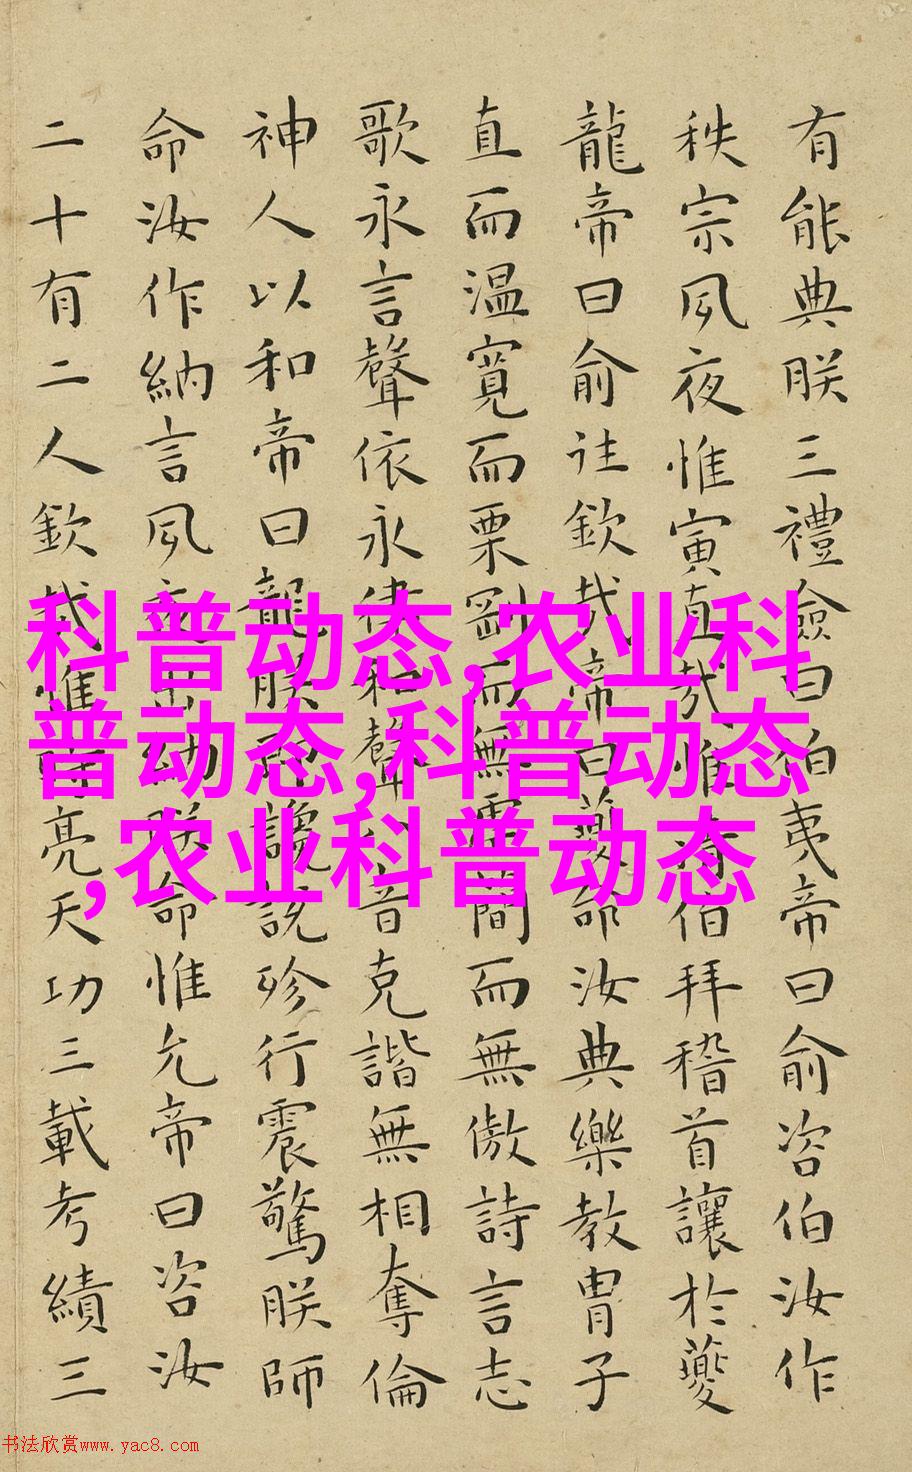 有能典朕三禮僉曰伯夷帝曰俞咨伯汝作
秩宗夙夜惟寅直哉惟清伯拜稽首讓於夔
龍帝曰俞往欽哉帝曰夔命汝典樂教胄子
直而温寬而栗剛而無虐簡而無傲詩言志
歌永言聲依永律和聲八音克諧無相奪倫
神人以和帝曰龍朕讒說殄行震驚朕師
命汝作納言夙夜出納朕命惟允帝曰咨汝
二十有二人欽哉惟時亮天功三載考績三
科普动态,农业科
普动态,科普动态
,农业科普动态
书法欣赏www.yac8.com